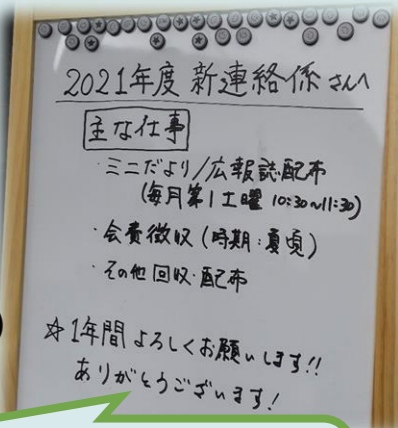 2021年度 新連絡係さんへ
主な仕事
・ミニだより/広報誌配布
(毎月第1土曜 10:30~11:30)
・会費徴収(時期:夏頃)
・その他回収・配布
☆1年間よろしくお願いします!!
ありがとうございます!